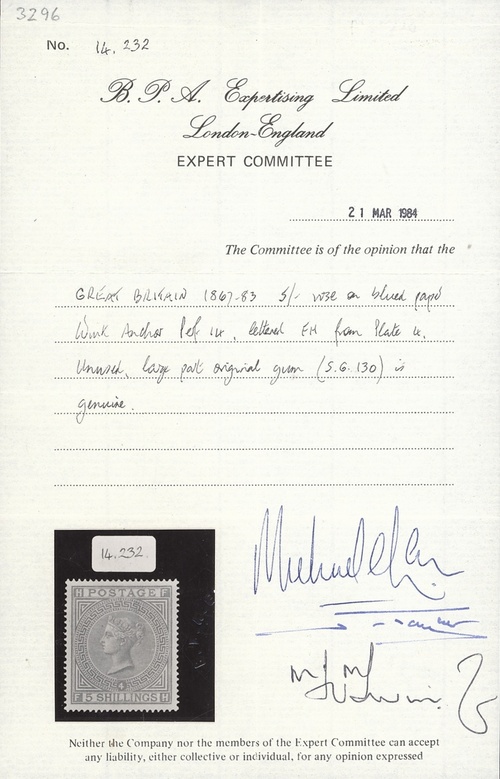 3296
No. 14,232
B. P. A. Expertising Limited
London-England
EXPERT COMMITTEE
21 MAR 1984
The Committee is of the opinion that the
GREAT BRITAIN 1867-83 5/- rose on blued paper
Wmk Anchor Perf 14, lettered FH from Plate 4.
Unused, large part original gum (S.G. 130) is
genuine.
14,232.
H POSTAGE F
4
F 5 SHILLINGS H
Neither the Company nor the members of the Expert Committee can accept
any liability, either collective or individual, for any opinion expressed